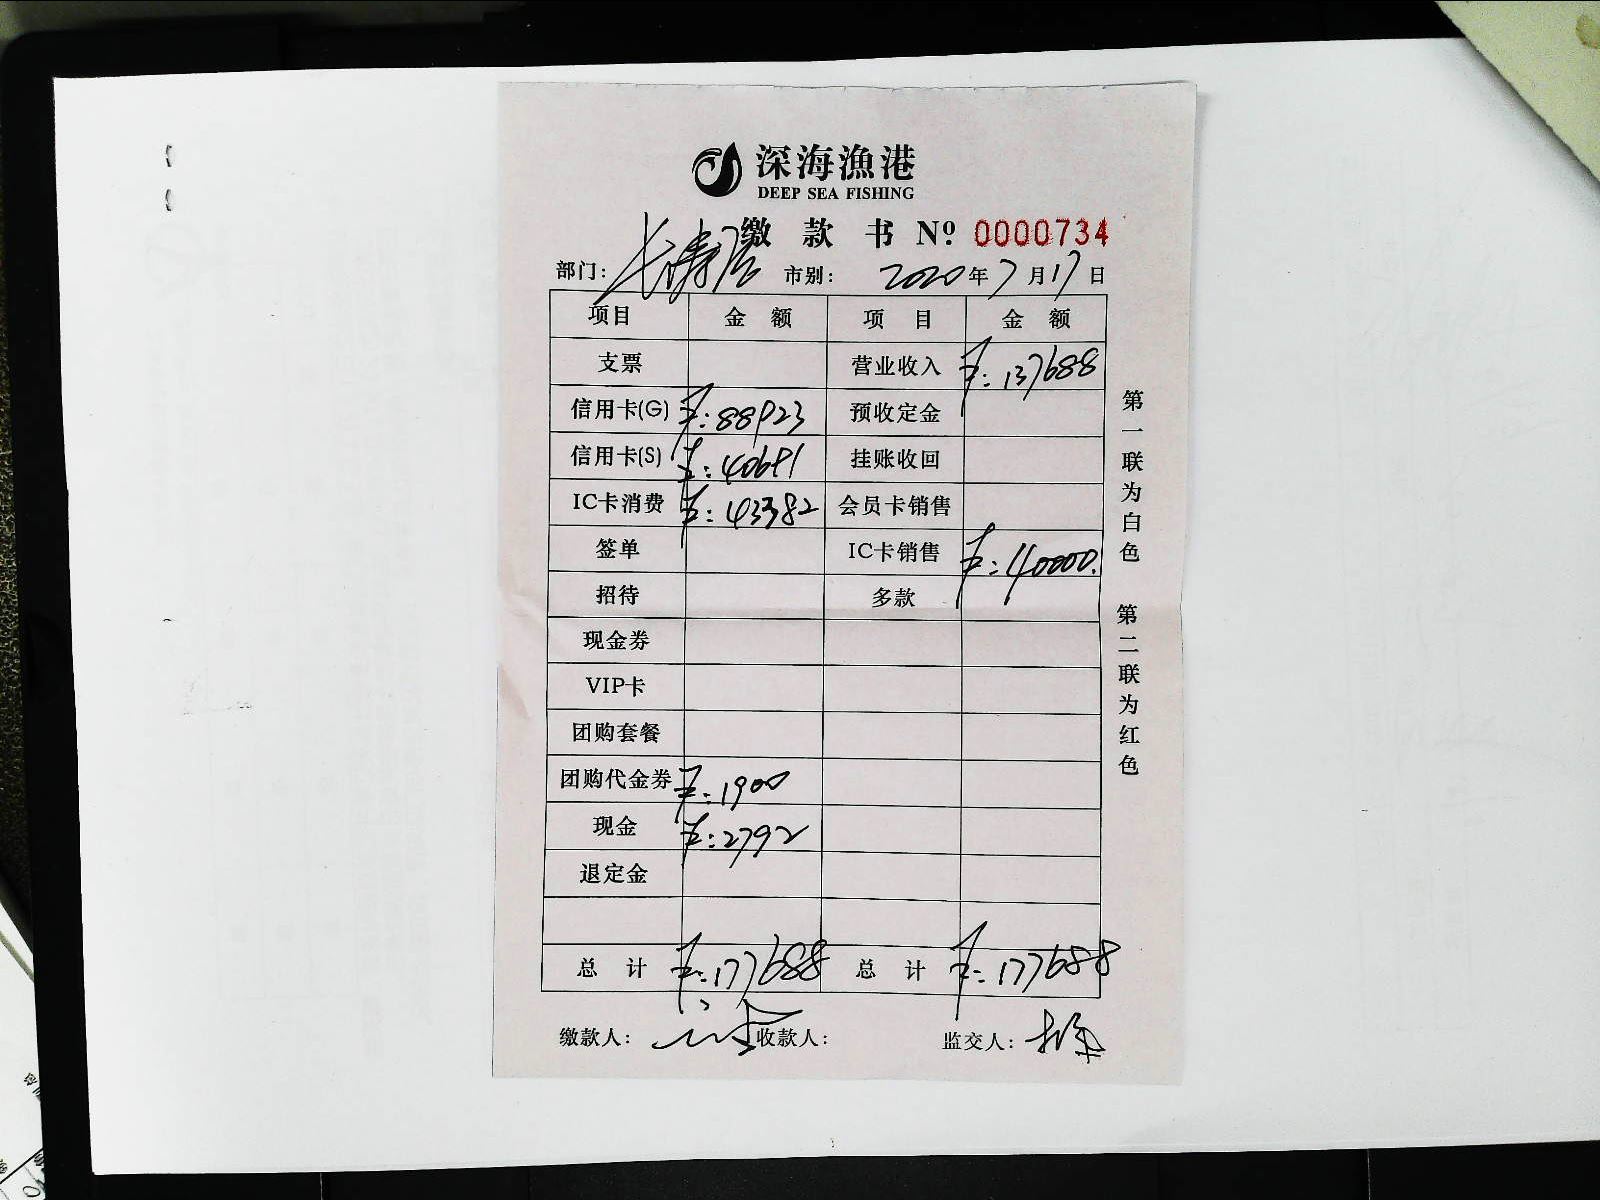 深海漁港
DEEP SEA FISHING
缴款书 Nº 0000734
部门：长寿店 市别： 2020年7月17日
项目 金额 项目 金额
支票 营业收入 ¥:137688
信用卡(G) ¥:88923 预收定金
信用卡(S) ¥:40691 挂账收回
IC卡消费 ¥:43382 会员卡销售
签单 IC卡销售 ¥:40000.
招待 多款
现金券
VIP卡
团购套餐
团购代金券 ¥:1900
现金 ¥:2792
退定金
总计 ¥:177688 总计 ¥:177688
缴款人： 收款人： 监交人：
第一联为白色 第二联为红色